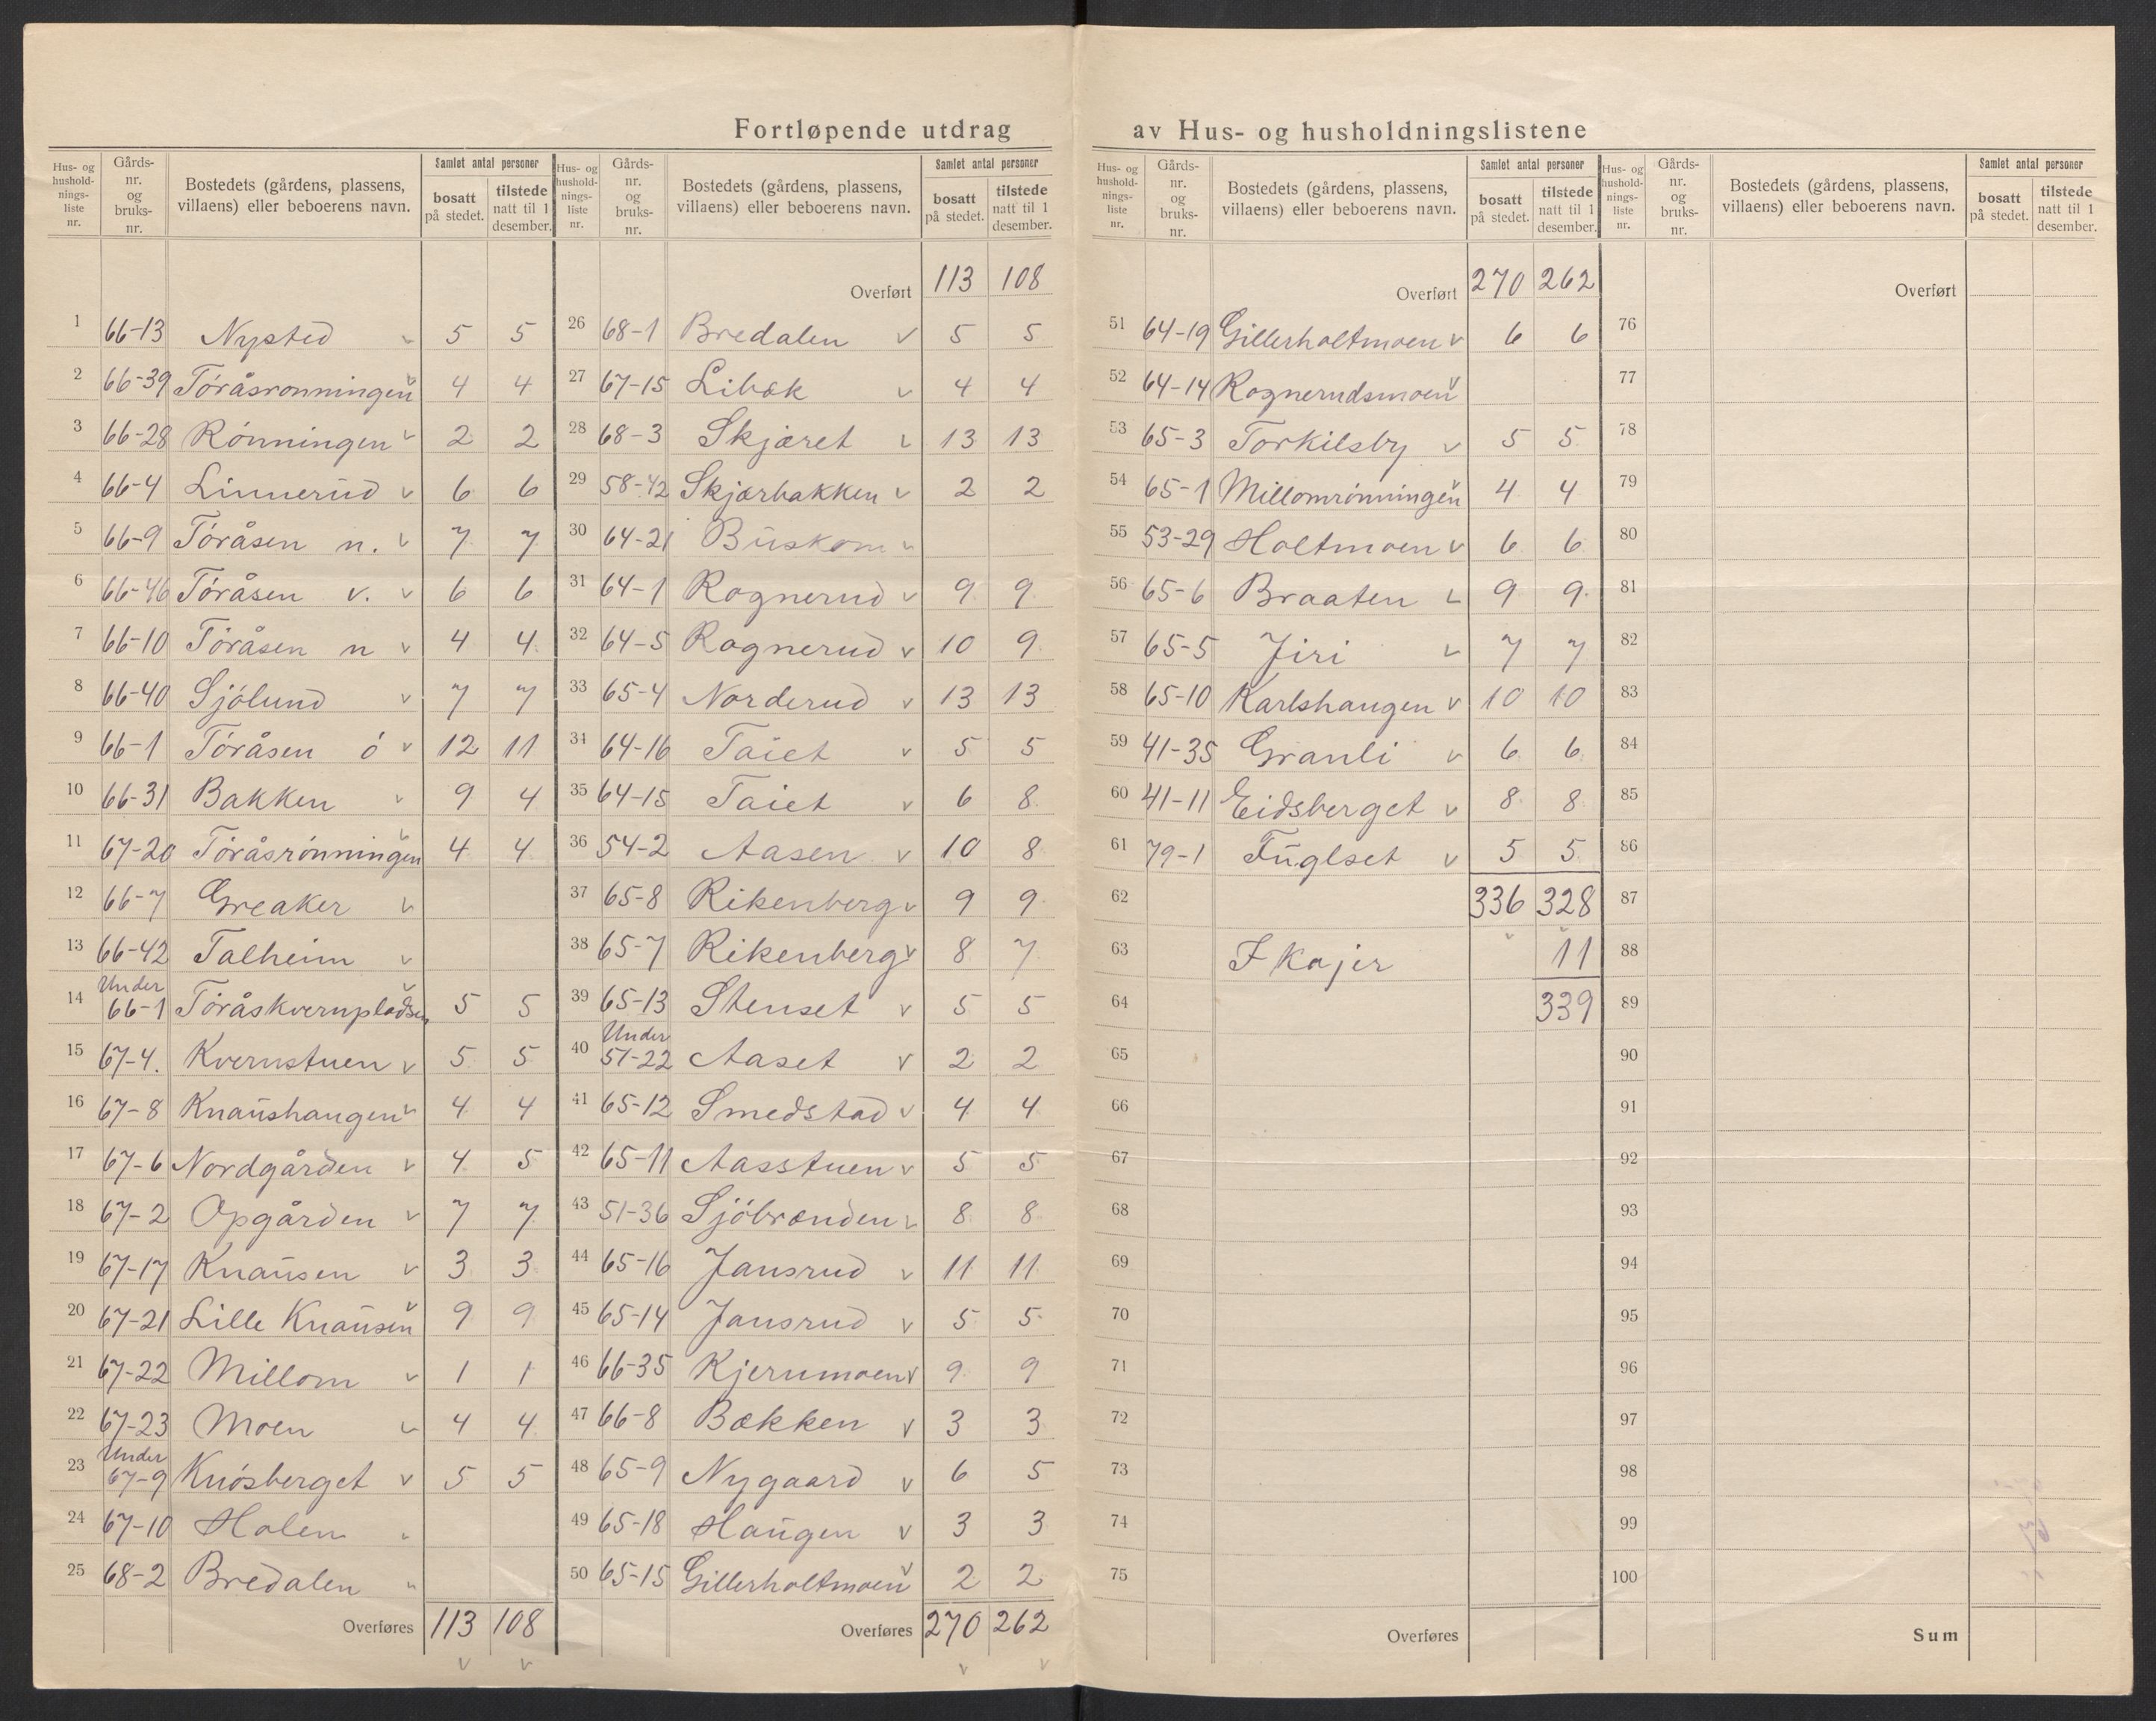 Fortløpende utdrag av Hus- og husholdningslistene
Hus- og husholdningsliste nr. | Gårds-nr. og bruks-nr. | Bostedets (gårdens, plassens, villaens) eller beboerens navn. | Samlet antal personer: bosatt på stedet. | tilstede natt til 1 desember.
1 66-13 Nysted 5 5
2 66-39 Tóråsronningen 4 4
3 66-28 Rónningen 2 2
4 66-4 Linnerud 6 6
5 66-9 Tóråsen n. 7 7
6 66-46 Tóråsen v. 6 6
7 66-10 Tóråsen n 4 4
8 66-40 Sjólund 7 7
9 66-1 Tóråsen ó 12 11
10 66-31 Bakken 9 4
11 67-20 Tóråsrónningen 4 4
12 66-7 Greaker
13 66-42 Talheim
14 Under 66-1 Tóråskvernpladsen 5 5
15 67-4. Kvernstuen 5 5
16 67-8 Knaushaugen 4 4
17 67-6 Nordgården 4 5
18 67-2 Opgården 7 7
19 67-17 Knausen 3 3
20 67-21 Lille Knausen 9 9
21 67-22 Millom 1 1
22 67-23 Moen 4 4
23 Under 67-9 Knósberget 5 5
24 67-10 Holen
25 68-2 Bredalen
Overføres 113 108
Hus- og husholdningsliste nr. | Gårds-nr. og bruks-nr. | Bostedets (gårdens, plassens, villaens) eller beboerens navn. | Samlet antal personer: bosatt på stedet. | tilstede natt til 1 desember.
Overført 113 108
26 68-1 Bredalen 5 5
27 67-15 Libæk 4 4
28 68-3 Skjæret 13 13
29 58-42 Skjærbakken 2 2
30 64-21 Buskom
31 64-1 Rognerud 9 9
32 64-5 Rognerud 10 9
33 65-4 Norderud 13 13
34 64-16 Taiet 5 5
35 64-15 Taiet 6 8
36 54-2 Aasen 10 8
37 65-8 Rikenberg 9 9
38 65-7 Rikenberg 8 7
39 65-13 Stenset 5 5
40 Under 51-22 Aaset 2 2
41 65-12 Smedstad 4 4
42 65-11 Aasstuen 5 5
43 51-36 Sjóbrænden 8 8
44 65-16 Jansrud 11 11
45 65-14 Jansrud 5 5
46 66-35 Kjernmoen 9 9
47 66-8 Bækken 3 3
48 65-9 Nygaard 6 5
49 65-18 Haugen 3 3
50 65-15 Gillerholtmoen 2 2
Overføres 270 262
Hus- og husholdningsliste nr. | Gårds-nr. og bruks-nr. | Bostedets (gårdens, plassens, villaens) eller beboerens navn. | Samlet antal personer: bosatt på stedet. | tilstede natt til 1 desember.
Overført 270 262
51 64-19 Gillerholtmoen 6 6
52 64-14 Rognerudsmoen
53 65-3 Torkilsby 5 5
54 65-1 Millomrónningen 4 4
55 53-29 Holtmoen 6 6
56 65-6 Braaten 9 9
57 65-5 Jiri 7 7
58 65-10 Karlshaugen 10 10
59 41-35 Granli 6 6
60 41-11 Eidsberget 8 8
61 79-1 Fuglset 5 5
62 336 328
63 I Kojer 11
64 339
65
66
67
68
69
70
71
72
73
74
75
Overføres
Hus- og husholdningsliste nr. | Gårds-nr. og bruks-nr. | Bostedets (gårdens, plassens, villaens) eller beboerens navn. | Samlet antal personer: bosatt på stedet. | tilstede natt til 1 desember.
Overført
76
77
78
79
80
81
82
83
84
85
86
87
88
89
90
91
92
93
94
95
96
97
98
99
100
Sum